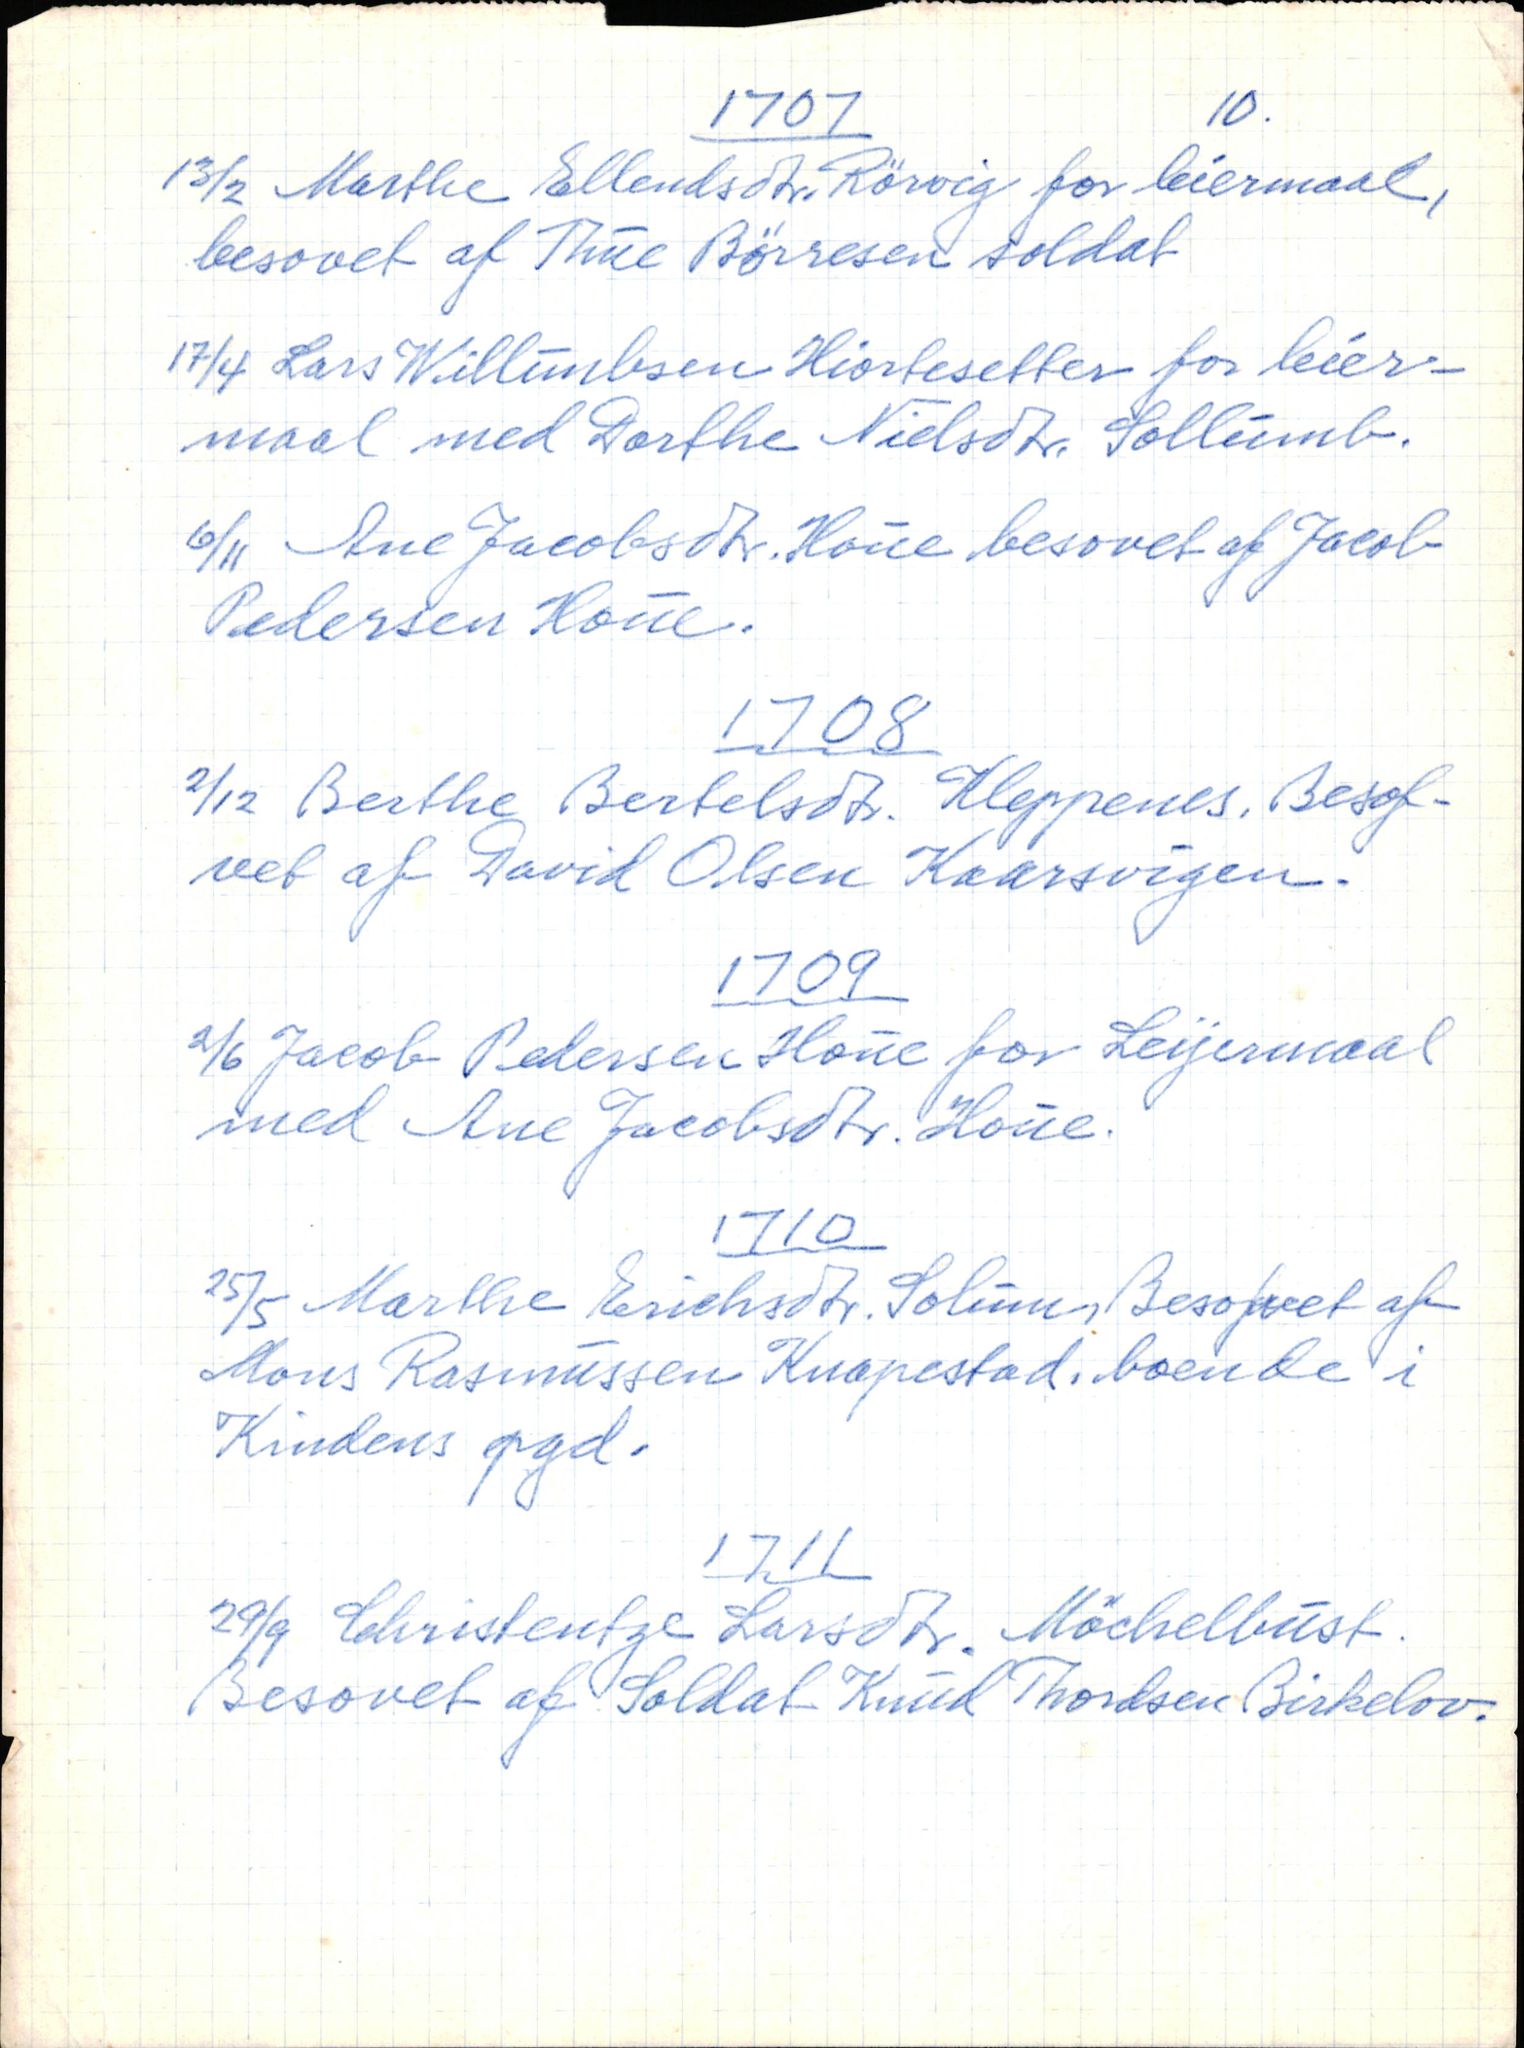 1707 10.
13/2 Marthe Ellendsdtr. Rörvig for leiermaal,
besovet af Thue Börresen soldat
17/4 Lars Willumbsen Hiortesetter for leier-
maal med Dorthe Nielsdtr. Sollumb.
6/11 Ane Jacobsdtr. Houe besovet af Jacob
Pedersen Houe.
1708
2/12 Berthe Bertelsdtr. Kleppenes. Besof-
vet af David Olsen Kaarsvigen.
1709
2/6 Jacob Pedersen Houe for Leijermaal
med Ane Jacobsdtr. Houe.
1710
25/5 Marthe Erichsdtr. Solum, Besofvet af
Mons Rasmussen Knapestad. boende i
Kindens pgd.
1711
29/9 Christentze Larsdtr. Möchelbust.
Besovet af Soldat Knud Thordsen Birkelov.